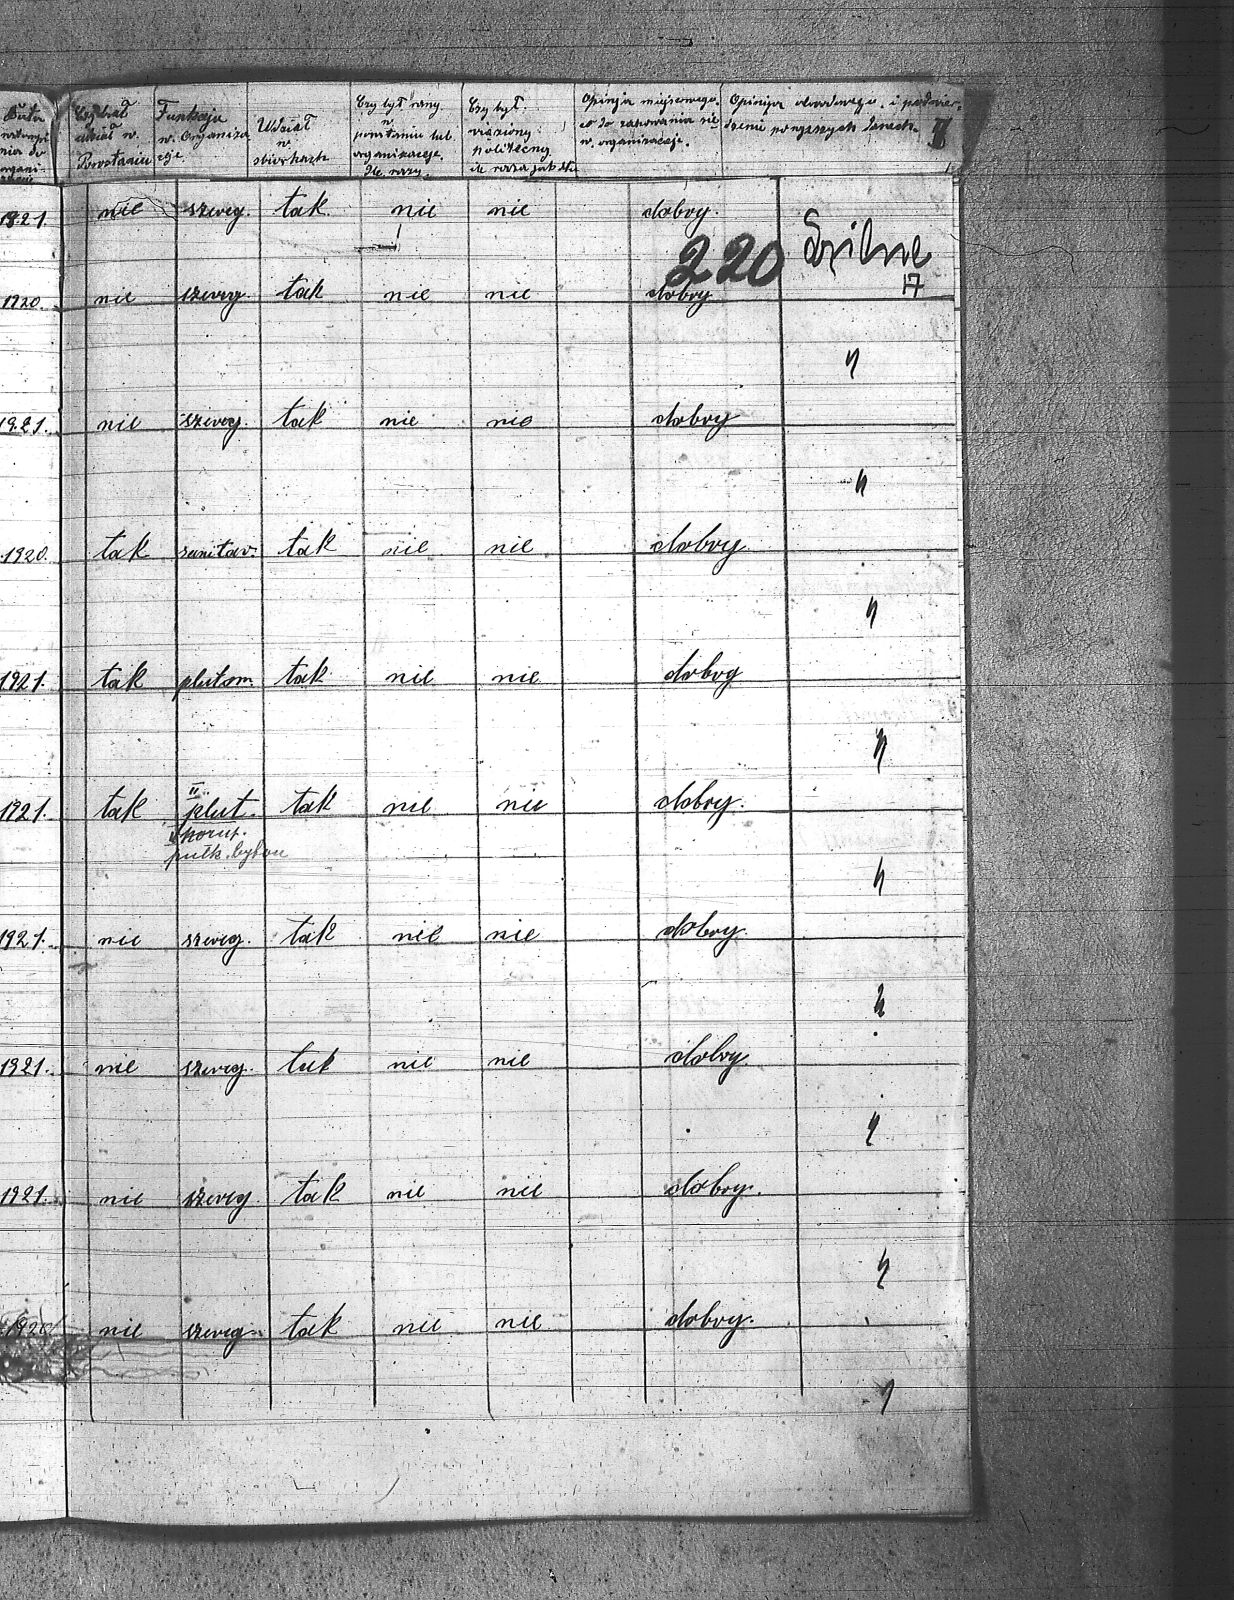 Data
Czy brał
udział w.
Powstaniu
Funkcja
w. Organiza
cje.
Udział
w
zbiórkach
Czy był rany
w
powstaniu lub
organizacje.
Ile razy.
Czy był
więziony
politeczny
ile raza jak dłu
Opinja miejscowego.
co do zachowania się
w. organizacje.
Opinija obwodowego. i potwier.
dzenie powyższych danech.
1921. nie szereg. tak. nie nie dobry.
220
17
1920. nie szereg. tak nie nie dobry
1921. nie szereg. tak nie nie dobry
1920. tak sanitar. tak nie nie dobry
1921. tak plutom. tak nie nie dobry
II
1921. tak plut. tak nie nie dobry.
pułk. bytom
1921. nie szereg. tak nie nie dobry.
1921. nie szereg. tak nie nie dobry.
1921. nie szereg. tak nie nie dobry.
1920 nie szereg. tak nie nie dobry.